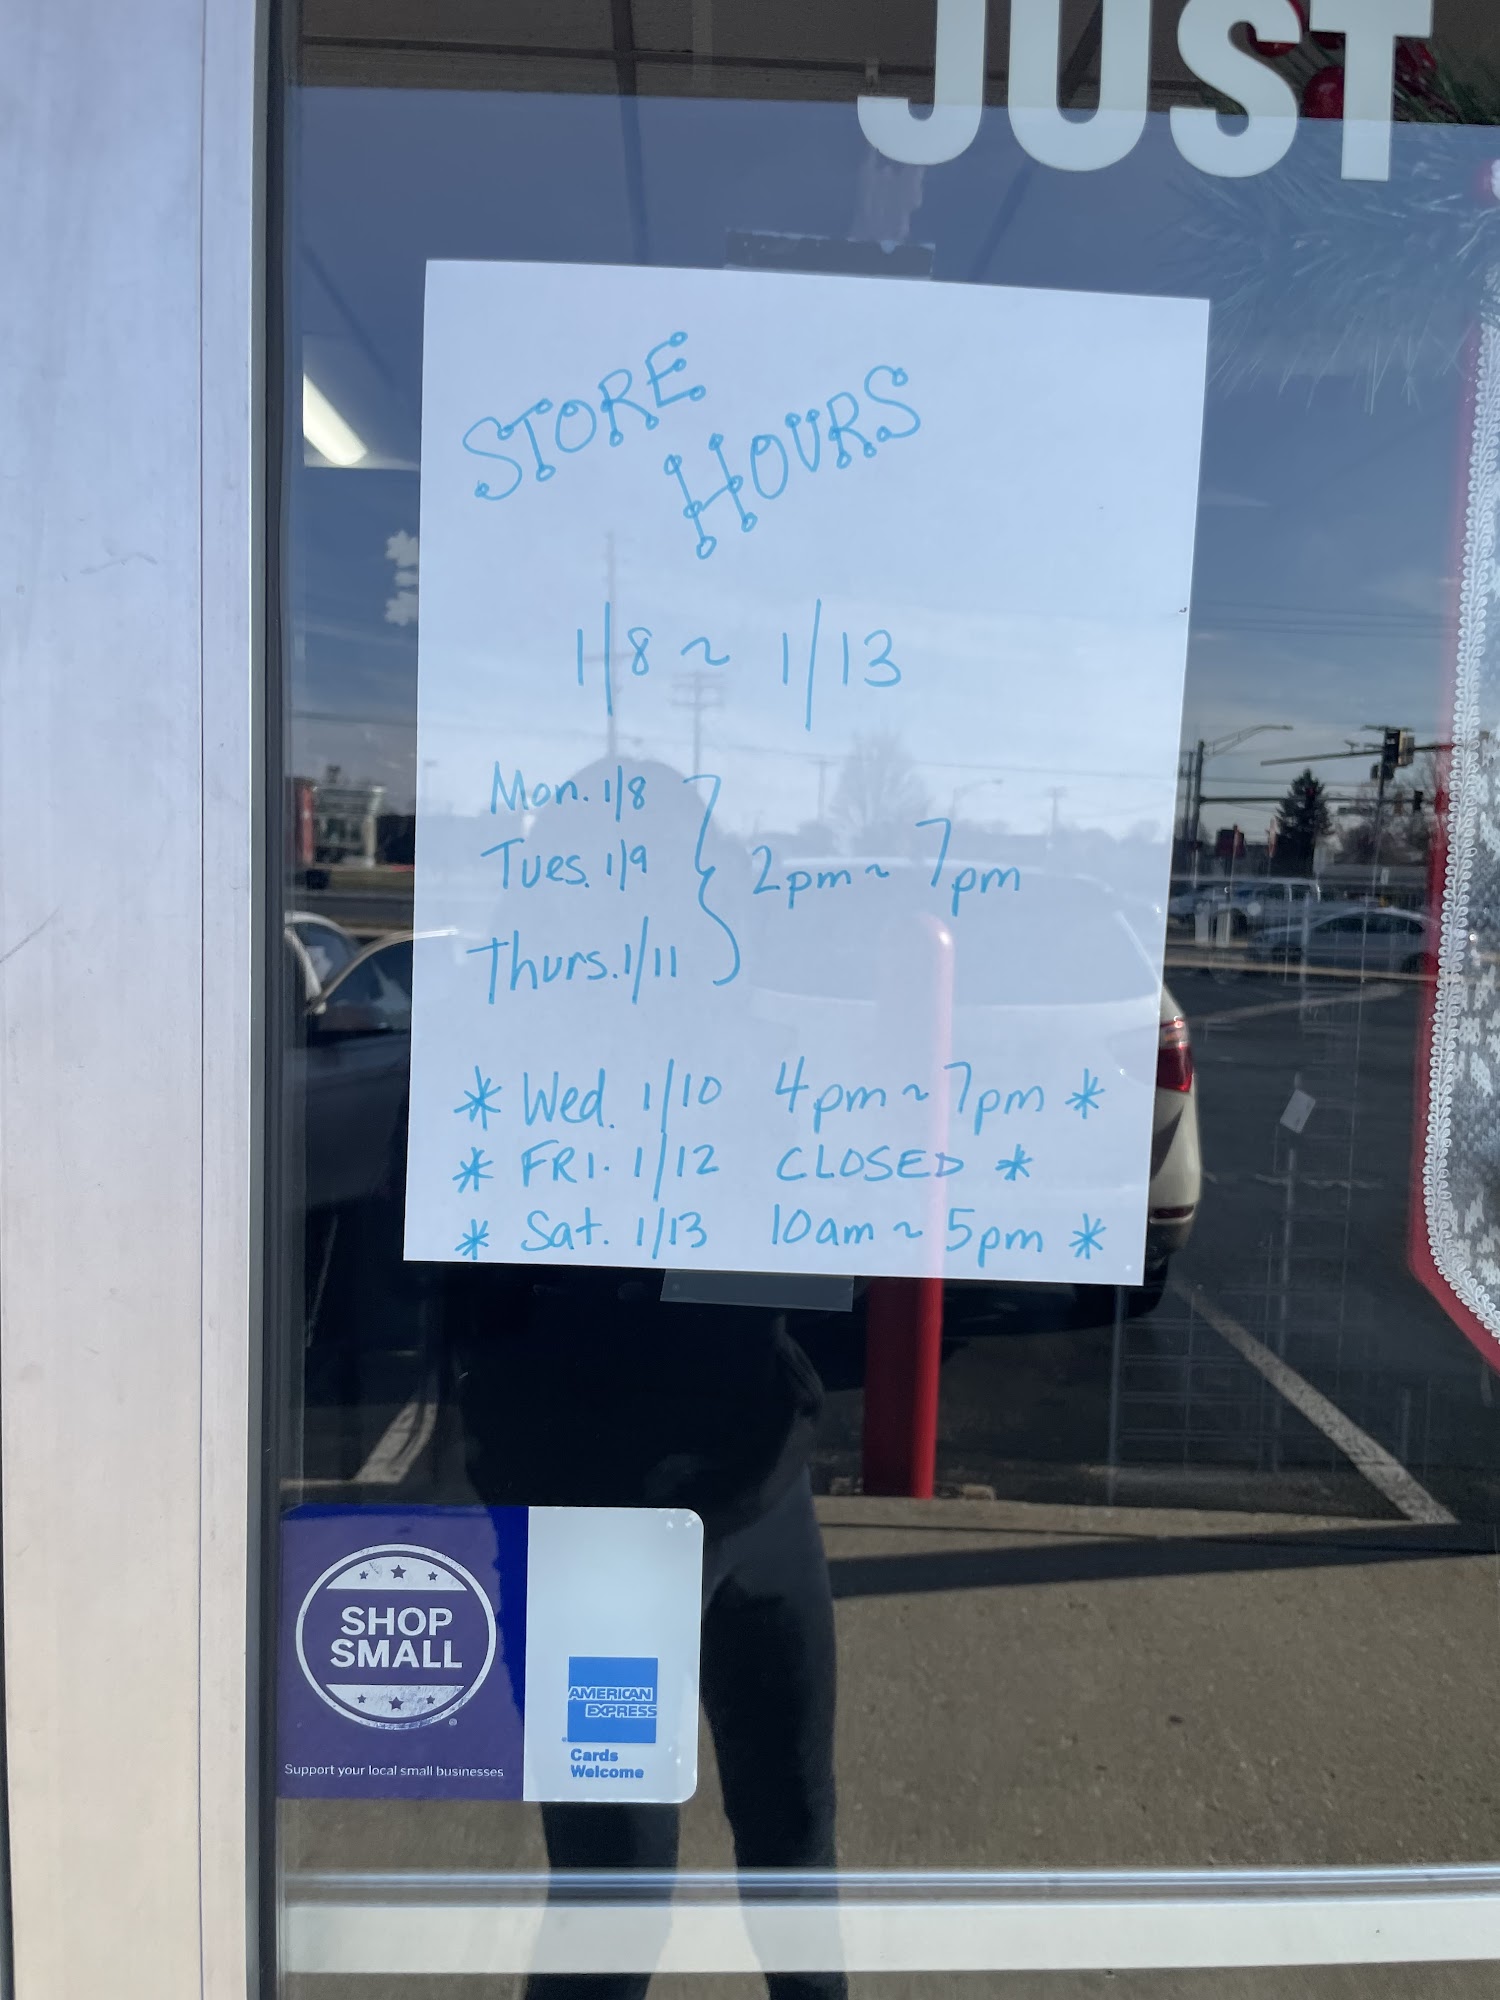 JUST
STORE
HOURS
1/8 ~ 1/13
Mon. 1/8
Tues. 1/9 } 2pm ~ 7pm
Thurs. 1/11
* Wed. 1/10 4pm ~ 7pm *
* FRI. 1/12 CLOSED *
* Sat. 1/13 10am ~ 5pm *
SHOP
SMALL
Support your local small businesses
AMERICAN
EXPRESS
Cards
Welcome